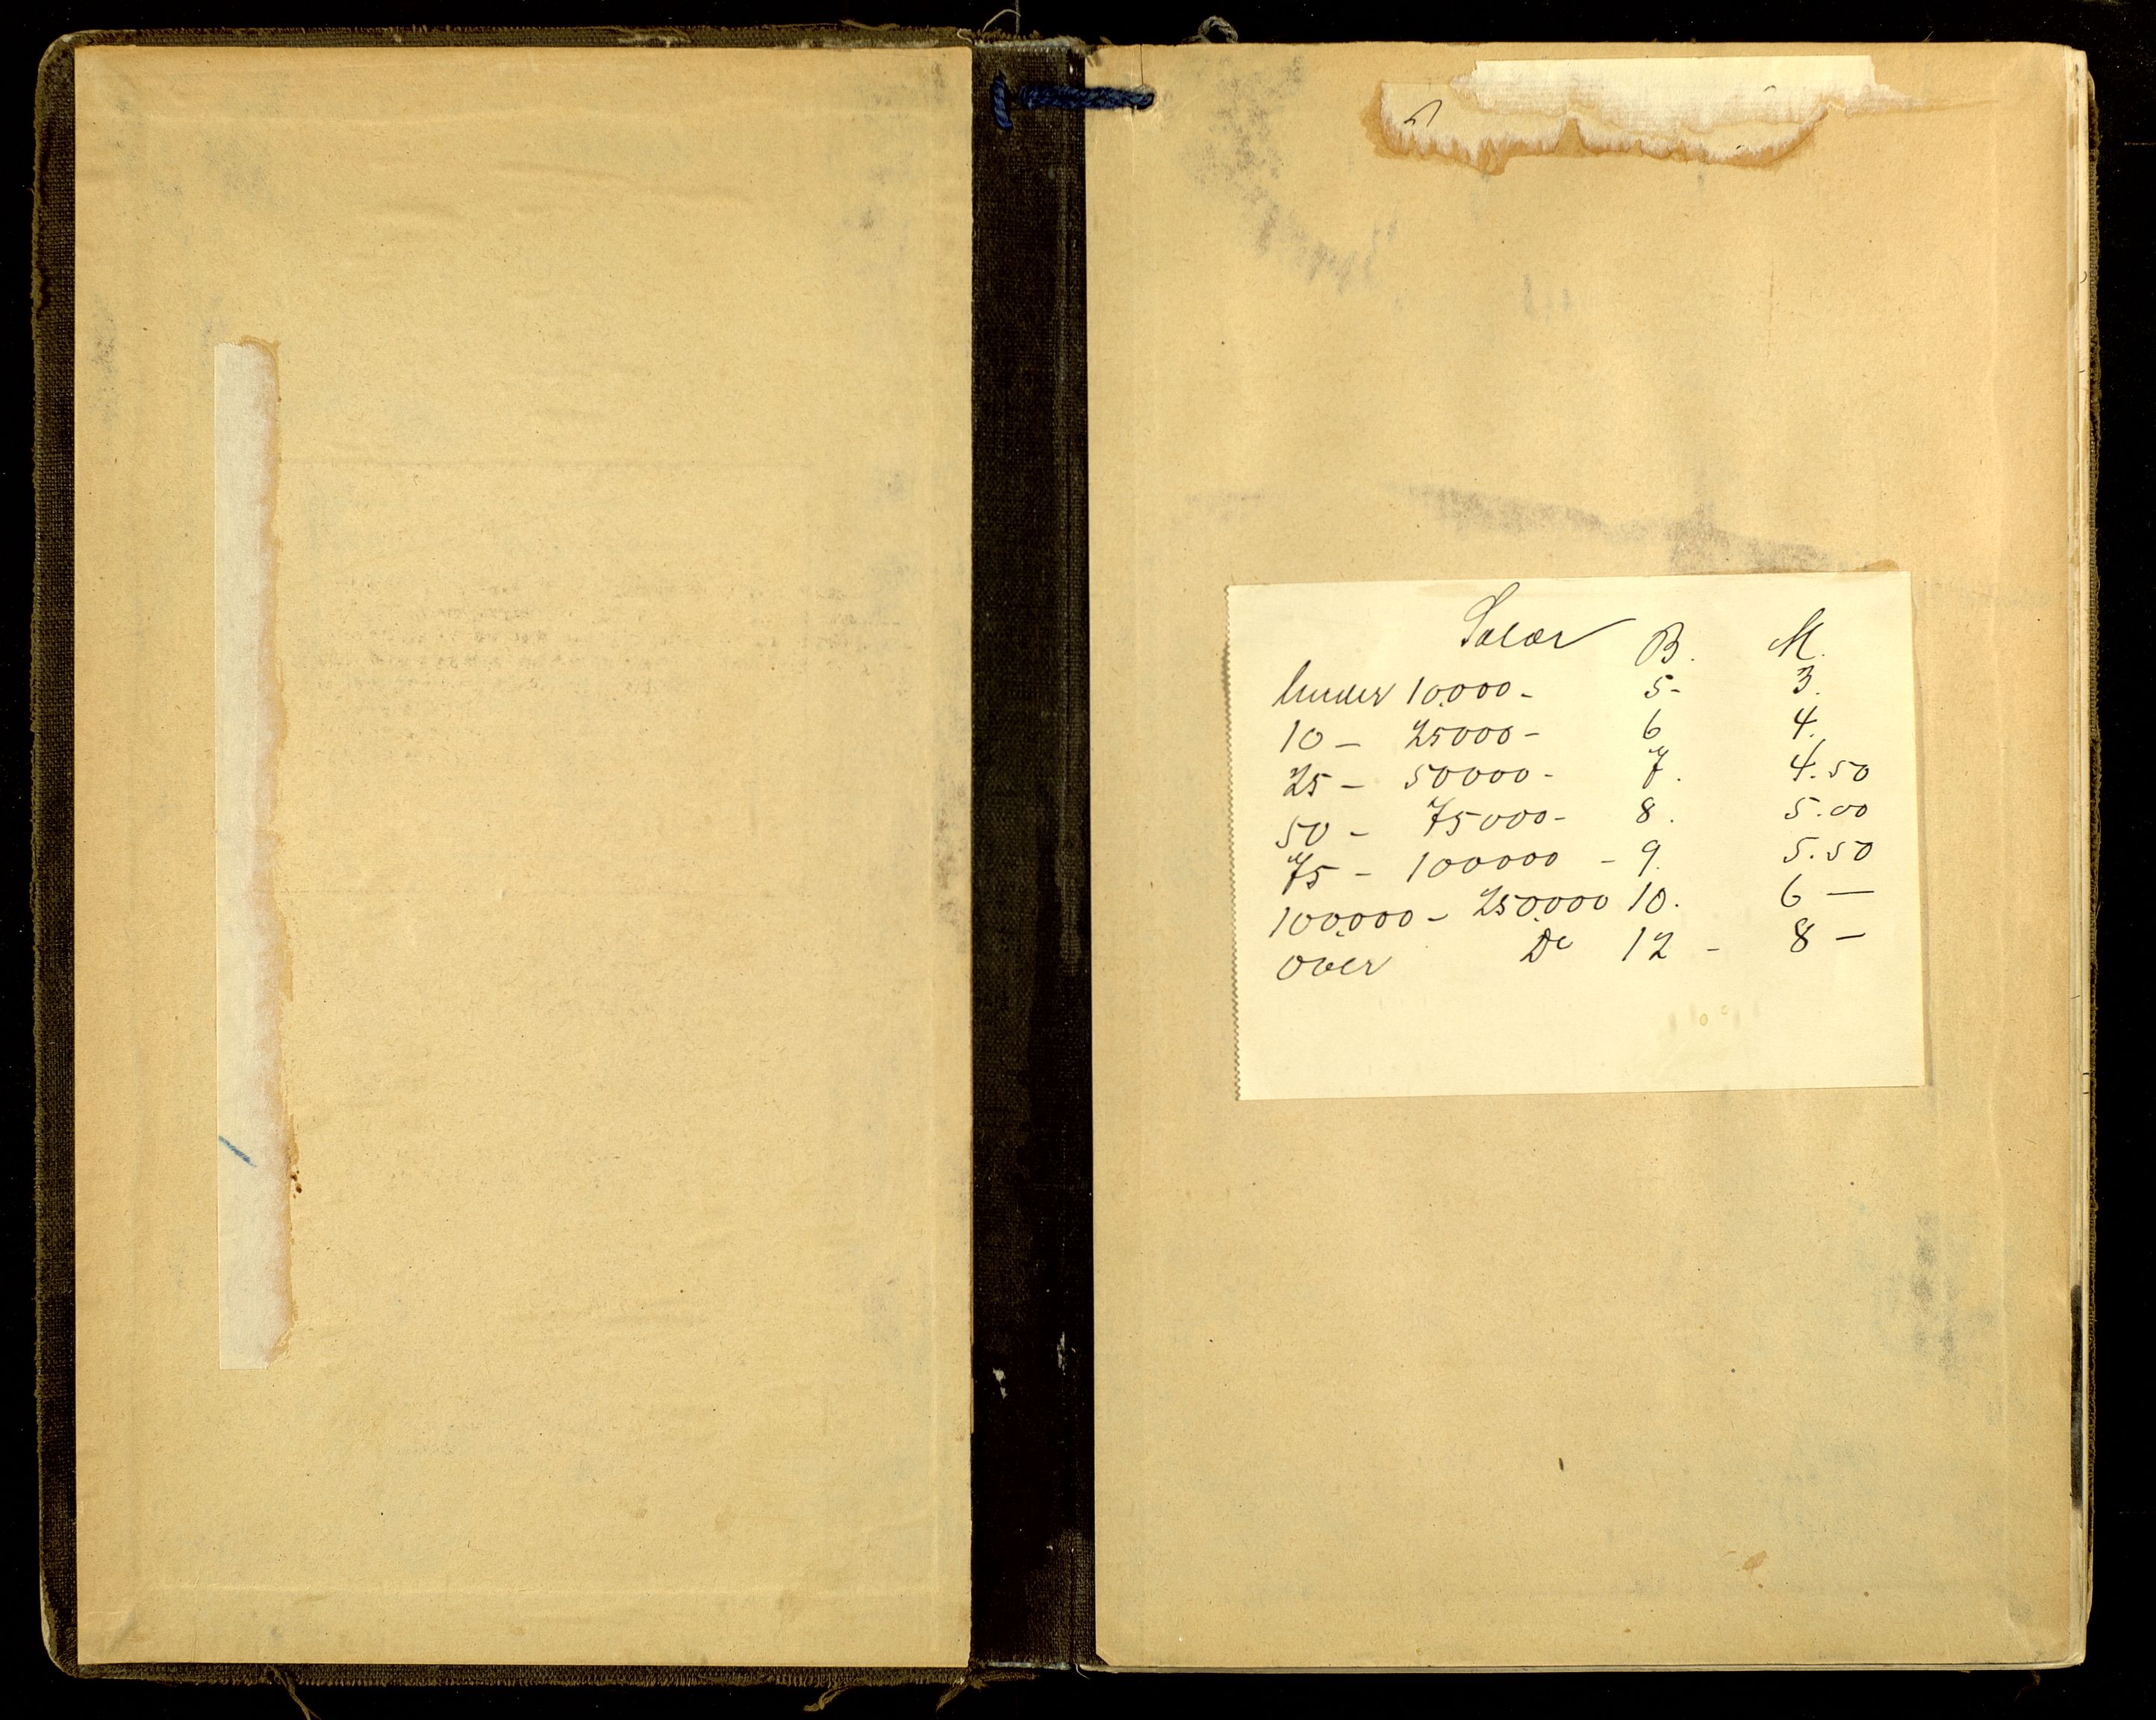 Salær B. M.
Under 10.000- 5- 3.
10- 25000- 6 4.
25- 50000- 7. 4.50
50- 75000- 8. 5.00
75- 100000 - 9. 5.50
100.000- 250.000 10. 6 —
Over Do 12 - 8 —